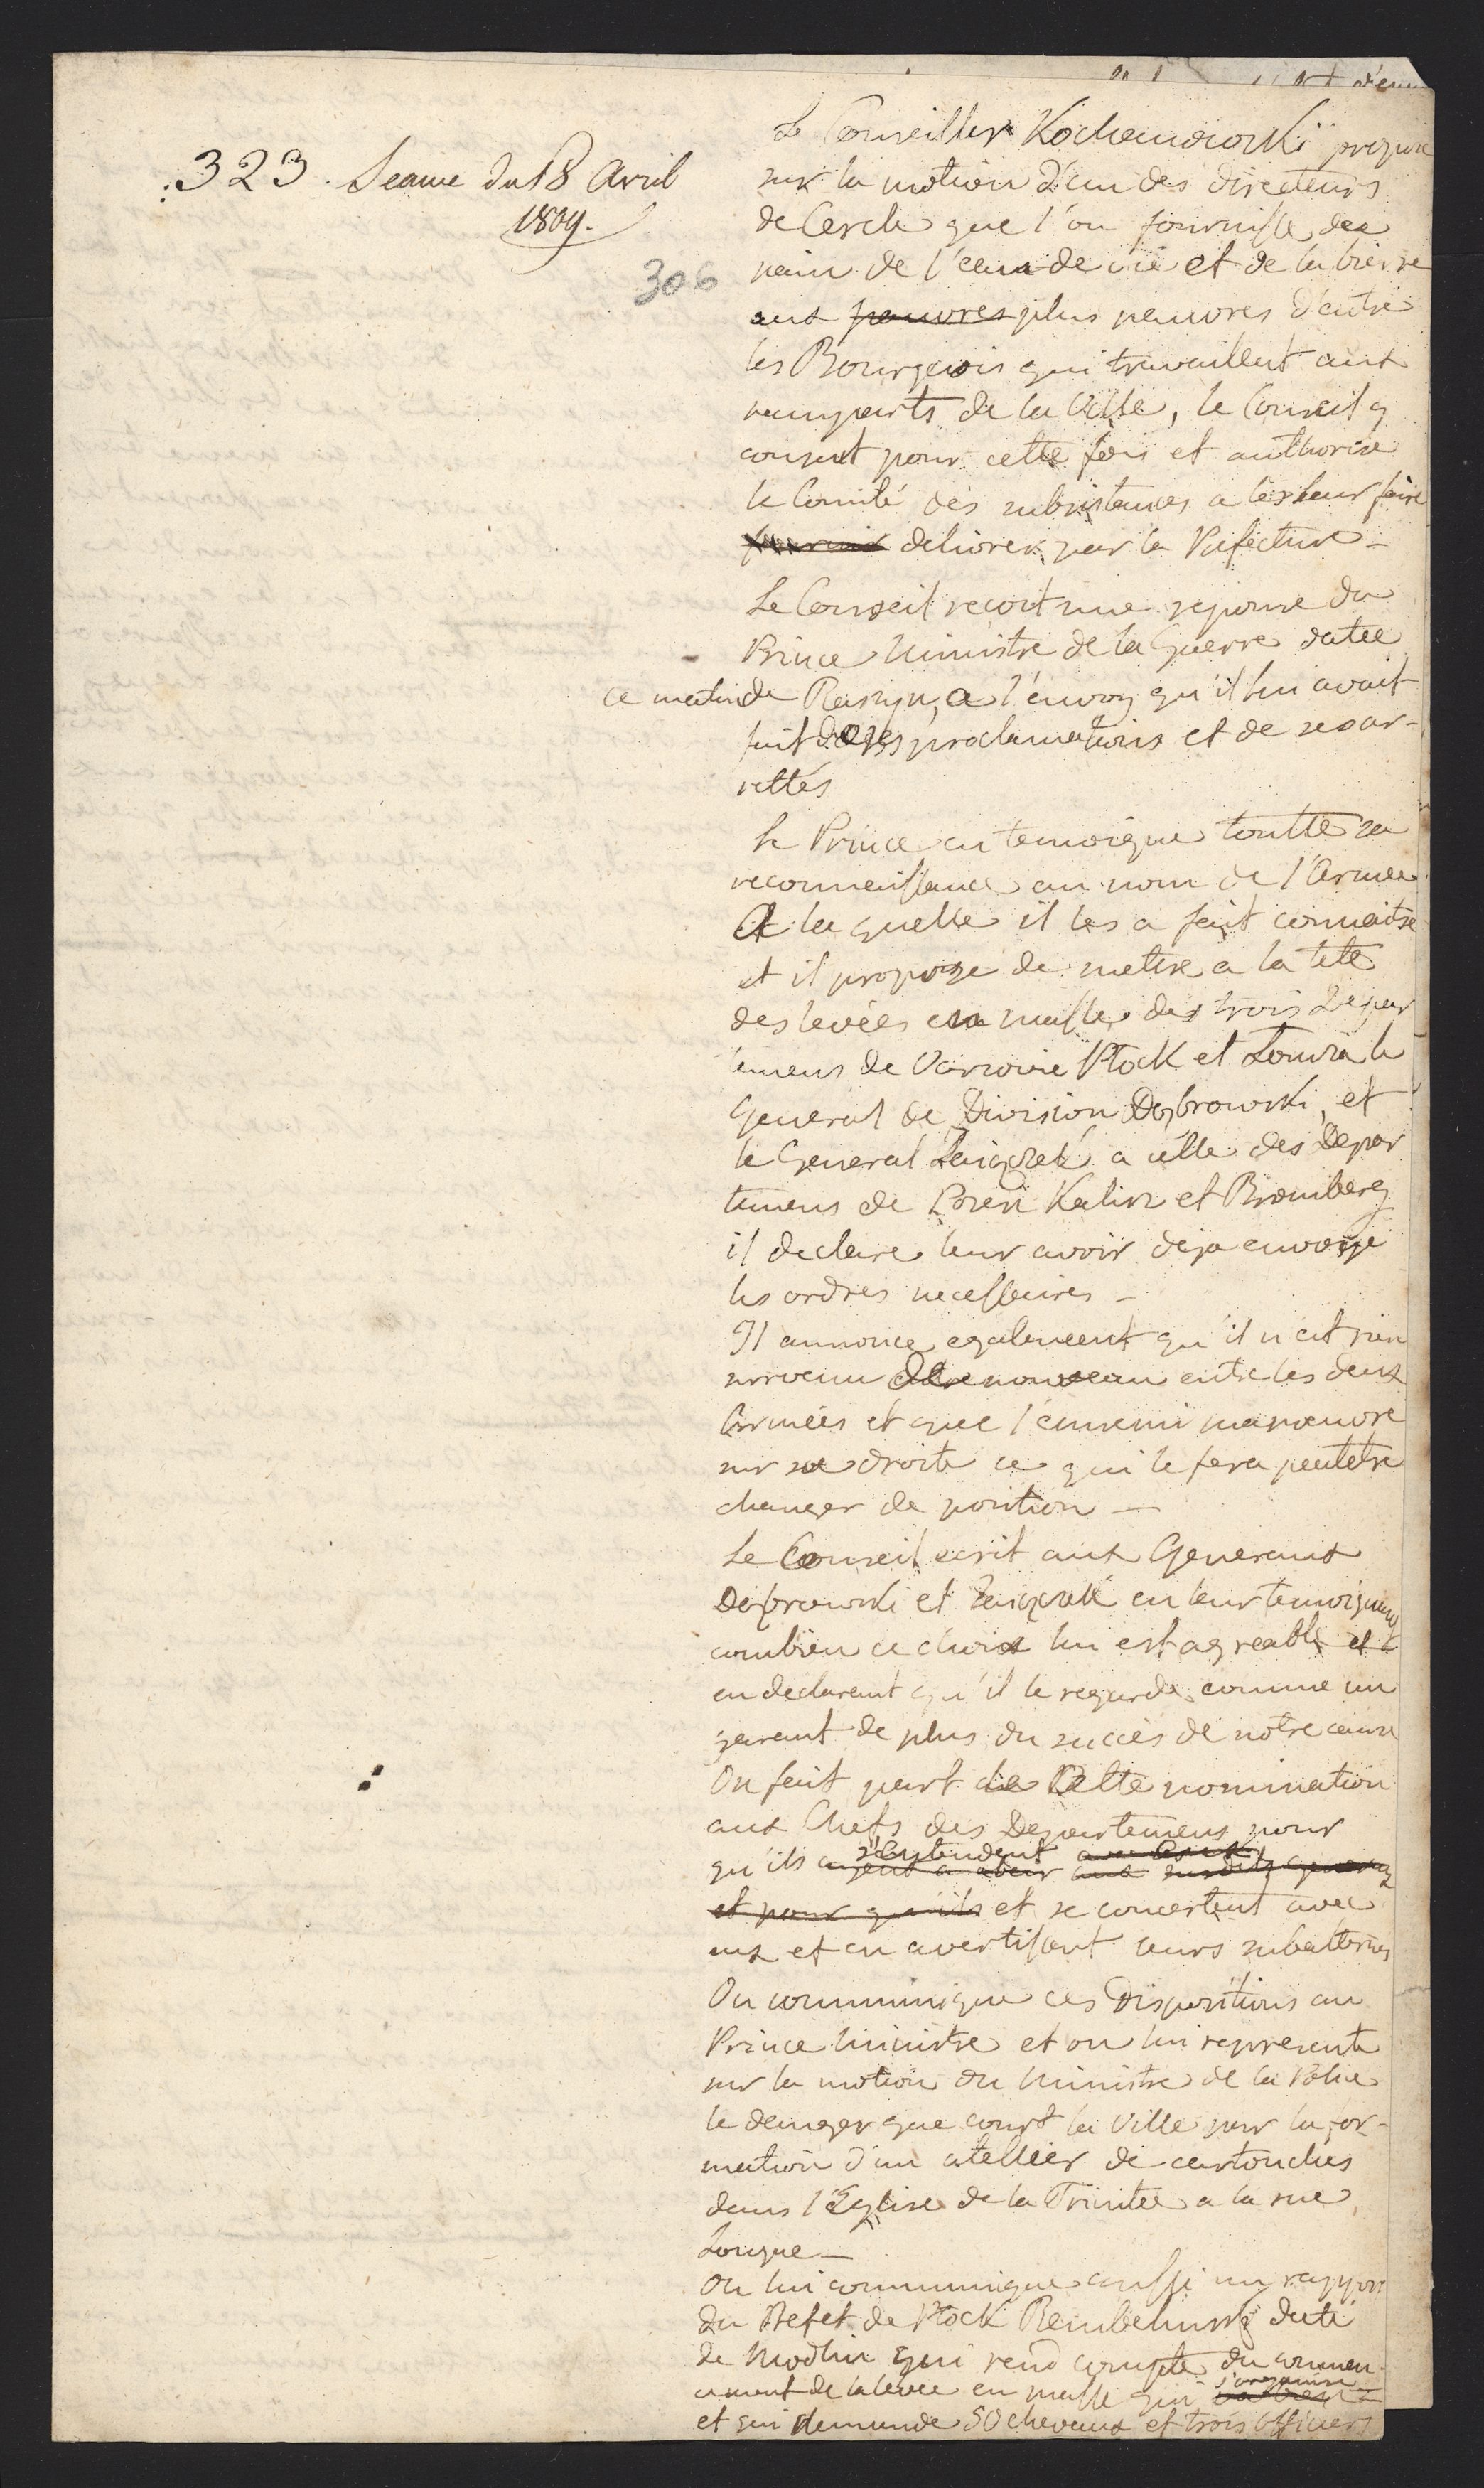 323. Seance du 18 Avril
1809.
306
Le Conseiller Kochanowski propose
sur la motion d'un des directeurs
de Cercle que l'on fournisse des
pain de l'eau de vie et de la bierre
aux pauvres plus pauvres d'entre
les Bourgeois qui travaillent aux
ramparts de la Ville, le Conseil y
consent pour cette fois et authorise
le Comité des subsistances a les leur faire
fournir delivrer par la Prefecture –
Le Conseil recoit une reponse du
Prince Ministre de la Guerre datée
ce matin de Raszyn, a l'envoy qu'il lui avait
fait de ses proclamations et de ses ar-
rettés
Le Prince en temoigne toutte sa
reconnaissance au nom de l'Armée
A la quelle il les a fait connaitre
et il propose de mettre a la tete
des levées en masse des trois Depar
temens de Varsovie Plock et Lomza le
General de Division Dąbrowski, et
le General Zaiączek a celle des Depar
temens de Posen Kalisz et Bromberg
il declare leur avoir deja envoyé
les ordres necessaires –
Il annonce egalement qu'il n'est rien
survenu de nouveau entre les deux
Armées et que l'ennemi manoeuvre
sur sa droite ce qui le fera peutetre
changer de position –
Le Conseil ecrit aux Generaux
Dąbrowski et Zaiączek en leur temoignant
combien ce choix lui est agreable et
en declarant qu'il le regarde comme un
garant de plus du succès de notre cause
On fait part de Cette nomination
aux Chefs des Departemens pour
s'entendent avec eux
qu'ils ayent a obeir aux susdits generaux
et pour qu'ils et se concertent avec
eux et en avertissent leurs subalternes
On communique ces Dispositions au
Prince Ministre et on lui represente
sur la motion du Ministre de la Police
le danger que court la Ville par la for-
mation d'un atellier de cartouches
dans l'Eglise de la Trinitée a la rue
Longue –
On lui communique aussi un rapport
du Prefet de Plock Rembielinski daté
de Modlin qui rend compte du commen
s'organise
cement de la levée en masse qui
et qui demande 50 chevaux et trois officiers